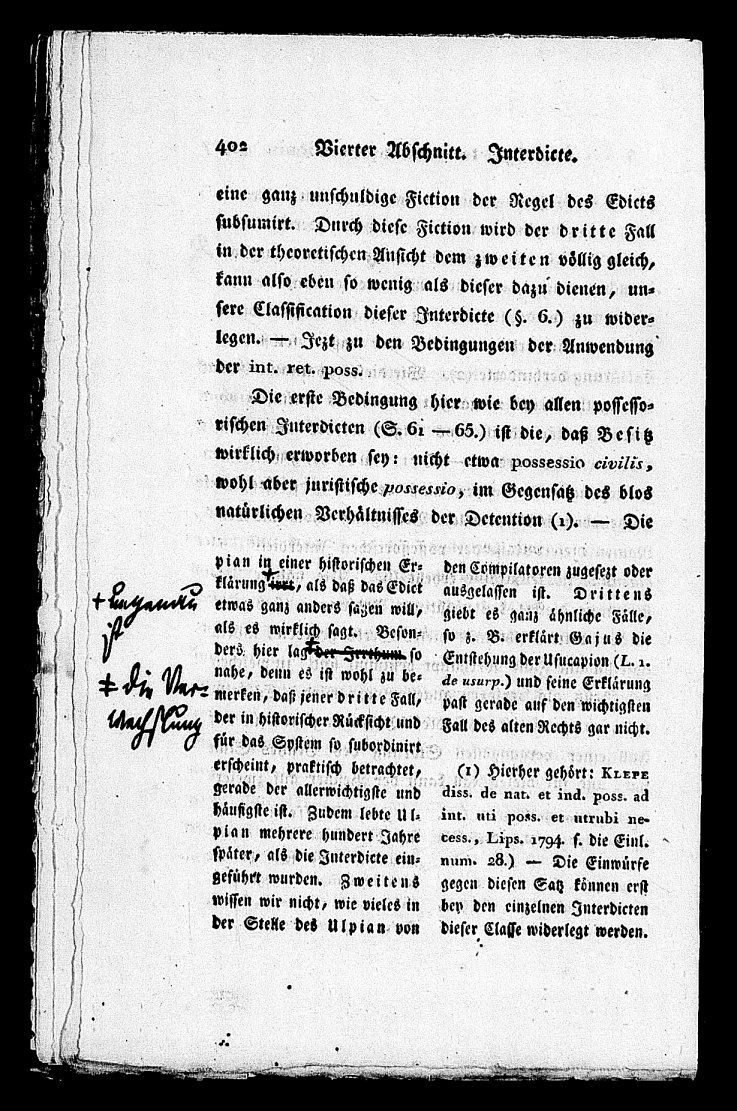 402 Vierter Abschnitt. Interdicte.
eine ganz unschuldige Fiction der Regel des Edicts
subsumirt. Durch diese Fiction wird der dritte Fall
in der theoretischen Ansicht dem zweiten völlig gleich,
kann also eben so wenig als dieser dazu dienen, un-
sere Classification dieser Interdicte (§. 6.) zu wider-
legen. — Jezt zu den Bedingungen der Anwendung
der int. ret. poss.
Die erste Bedingung hier wie bey allen possesso-
rischen Interdicten (S. 61 — 65.) ist die, daß Besitz
wirklich erworben sey: nicht etwa possessio civilis,
wohl aber juristische possessio, im Gegensatz des blos
natürlichen Verhältnisses der Detention (1). — Die
pian in einer historischen Er-
klärung irrt, als daß das Edict
etwas ganz anders sagen will,
als es wirklich sagt. Beson-
ders hier lag der Irrthum so
nahe, denn es ist wohl zu be-
merken, daß jener dritte Fall,
der in historischer Rücksicht und
für das System so subordinirt
erscheint, praktisch betrachtet,
gerade der allerwichtigste und
häufigste ist. Zudem lebte Ul-
pian mehrere hundert Jahre
später, als die Interdicte ein-
geführt wurden. Zweitens
wissen wir nicht, wie vieles in
der Stelle des Ulpian von
+ ungenau
ist
‡ die Ver-
wechslung
den Compilatoren zugesezt oder
ausgelassen ist. Drittens
giebt es ganz ähnliche Fälle,
so z. B. erklärt Gajus die
Entstehung der Usucapion (L. 1.
de usurp.) und seine Erklärung
past gerade auf den wichtigsten
Fall des alten Rechts gar nicht.
(1) Hierher gehört: KLEPE
diss. de nat. et ind. poss. ad
int. uti poss. et utrubi ne-
cess., Lips. 1794. s. die Einl.
num. 28.) — Die Einwürfe
gegen diesen Satz können erst
bey den einzelnen Interdicten
dieser Classe widerlegt werden.